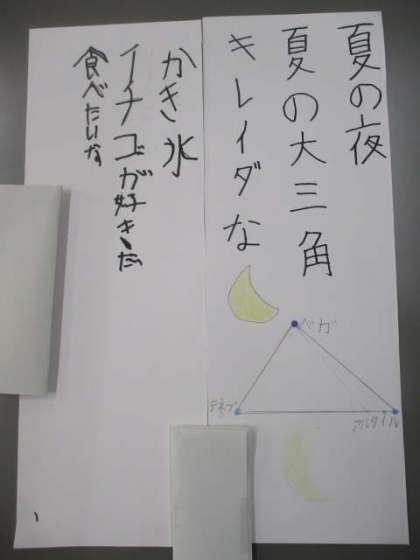 夏の夜
夏の大三角
キレイダな
ベガ
デネブ
アルタイル
かき氷
イチゴが好きだ
食べたいな